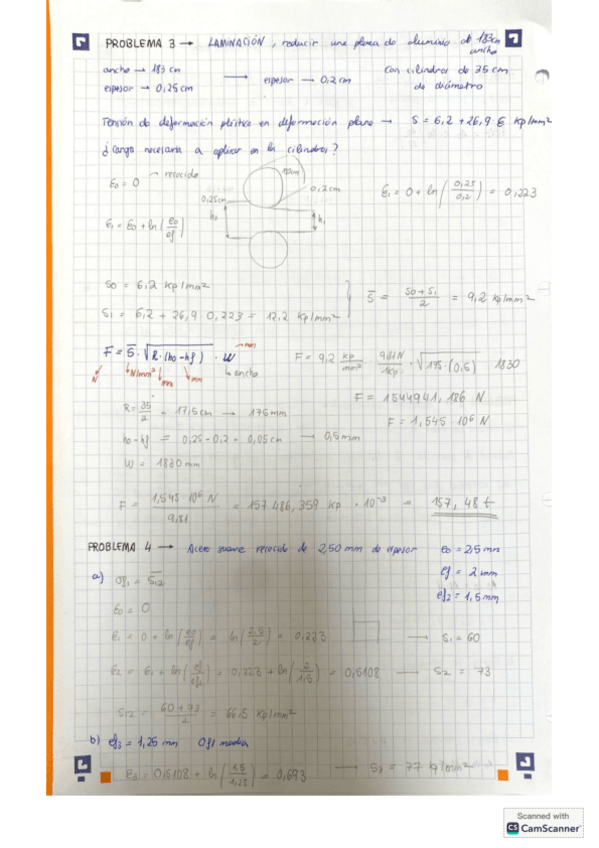 PROBLEMA 3 → LAMINACIÓN, reducir una placa de aluminio de 183 cm ancho
ancho → 183 cm
espesor → 0,25 cm → espesor → 0,2 cm con cilindros de 35 cm de diámetro
Tensión de deformación plástica en deformación plana → S = 6,2 + 26,9 · E kp/mm²
¿Carga necesaria a aplicar en los cilindros?
E0 = 0 recocido
0,25cm
0,2 cm
h0
h1
E1 = 0 + ln(0,25/0,2) = 0,223
E1 = E0 + ln(e0/ef)
S0 = 6,2 kp/mm²
S1 = 6,2 + 26,9 · 0,223 = 12,2 kp/mm²
S̄ = S0 + S1/2 = 9,2 kp/mm²
F = S̄ · √R · (h0 - hf) · W → mm
N N/mm² mm mm ancho
F = 9,2 kp/mm² · 9,81N/1kp · √175 · (0,5) 1830
F = 1544941,186 N
F = 1,545 · 10⁶ N
R = 35/2 = 17,5 cm → 175 mm
h0 - hf = 0,25 - 0,2 = 0,05 cm → 0,5 mm
W = 1830 mm
F = 1,545 · 10⁶ N/9,81 = 157486,359 kp · 10⁻³ = 157,48 t
PROBLEMA 4 → Acero suave recocido de 2,50 mm de espesor e0 = 2,5 mm
ef = 2 mm
ef2 = 1,5 mm
a)
E0 = 0
E1 = 0 + ln(e0/ef) = ln(2,5/2) = 0,223 → S1 = 60
E2 = E1 + ln(ef/ef2) = 0,223 + ln(2/1,5) = 0,5108 → S2 = 73
S12 = 60 + 73/2 = 66,5 kp/mm²
b) ef3 = 1,25 mm media
E3 = 0,5108 + ln(1,5/1,25) = 0,693 → S3 = 77 kp/mm²
Scanned with
CS CamScanner